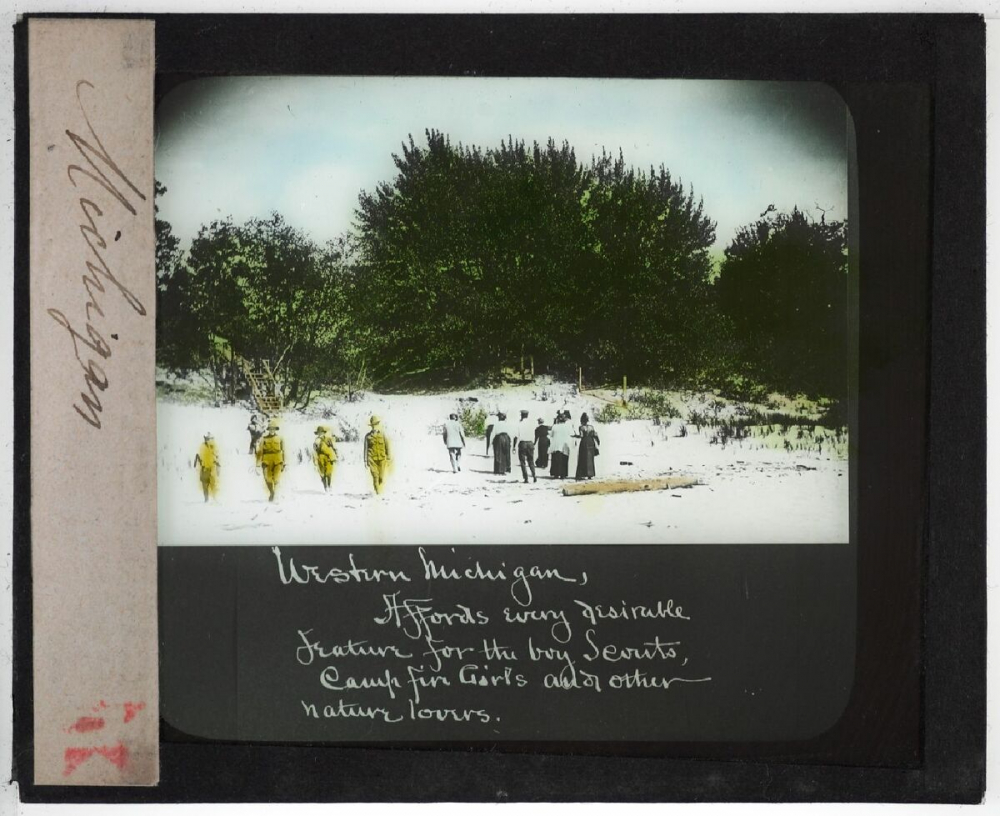 Michigan
Western Michigan,
Affords every desirable
feature for the boy Scouts,
Camp fire Girls and other
nature lovers.